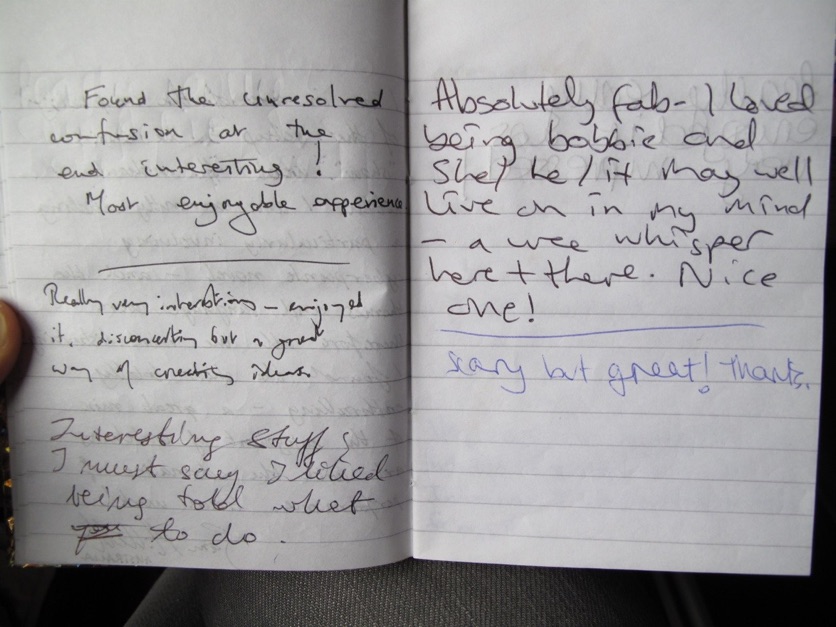 Found the unresolved
confusion at the
end interesting!
Most enjoyable apperience
Really very interesting – enjoyed
it, disconcerting but a great
way of creating ideas
Interesting stuff &
I must say I liked
being told what
to do.
Absolutely fab - I loved
being bobbie and
She/he/it may well
live on in my mind
– a wee whisper
here + there. Nice
one!
Scary but great! Thanks.